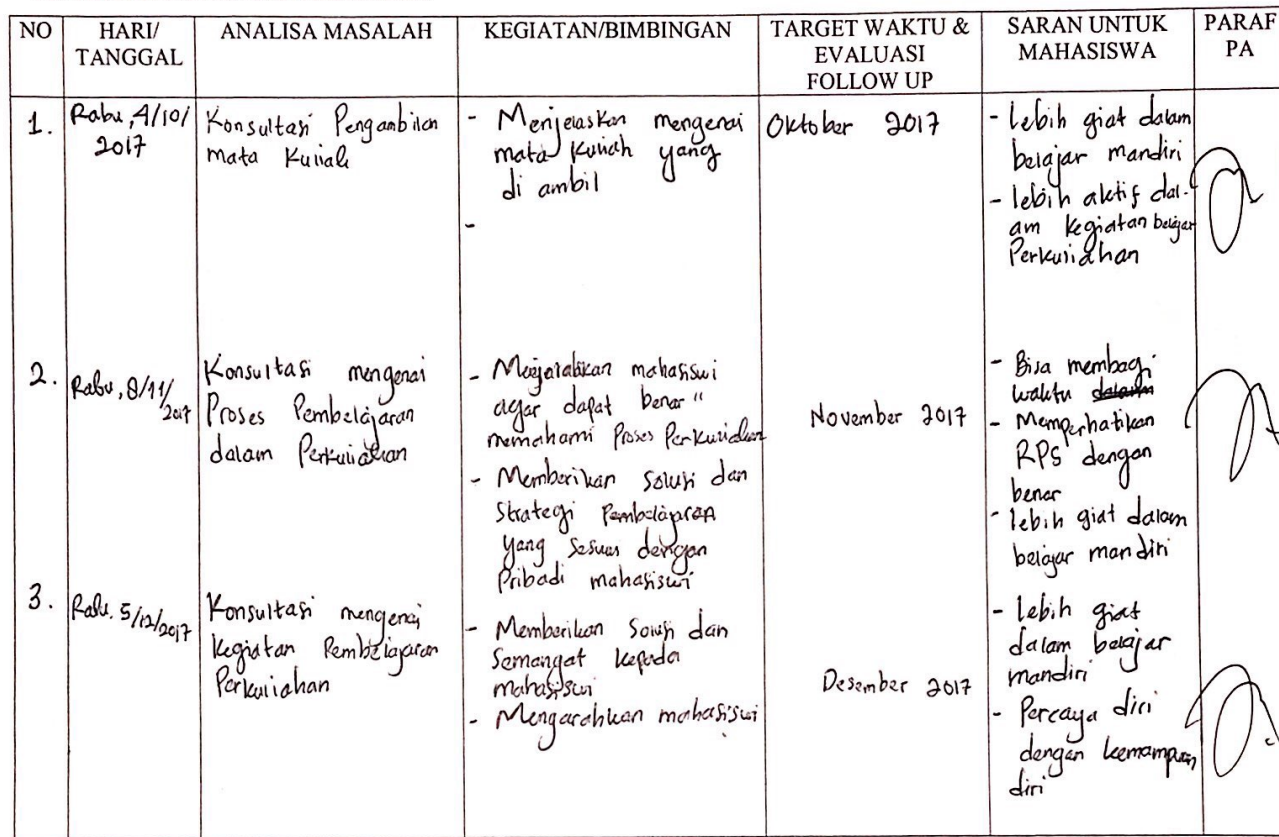 NO
HARI/
TANGGAL
ANALISA MASALAH
KEGIATAN/BIMBINGAN
TARGET WAKTU &
EVALUASI
FOLLOW UP
SARAN UNTUK
MAHASISWA
PARAF
PA
1.
Rabu, 4/10/
2017
Konsultasi Pengambilan
mata Kuliah
- Menjelaskan mengenai
mata kuliah yang
di ambil
-
Oktober 2017
- lebih giat dalam
belajar mandiri
- lebih aktif dal-
am kegiatan belajar
Perkuliahan
2.
Rabu, 8/11/
2017
Konsultasi mengenai
Proses Pembelajaran
dalam Perkuliahan
- mahasiswi
agar dapat benar"
memahami Proses Perkuliahan
- Memberikan Solusi dan
Strategi Pembelajaran
yang Sesuai dengan
Pribadi mahasiswi
November 2017
- Bisa membagi
waktu dalam
- Memperhatikan
RPS dengan
benar
- lebih giat dalam
belajar mandiri
3.
Rabu, 5/12/2017
Konsultasi mengenai
kegiatan Pembelajaran
Perkuliahan
- Memberikan Solusi dan
Semangat kepada
mahasiswi
- Mengarahkan mahasiswi
Desember 2017
- lebih giat
dalam belajar
mandiri
- Percaya diri
dengan kemampuan
diri